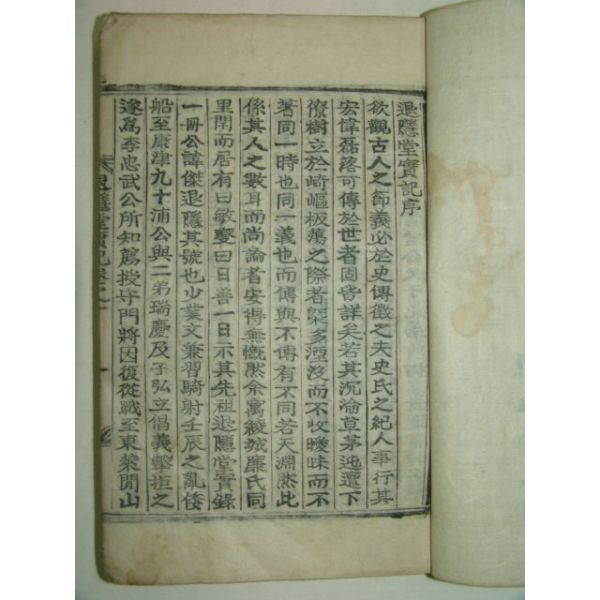 退隱堂實記序
欲觀古人之節義必於史傳徵之夫史氏之紀人事行其
宏偉磊落可傳於世者固皆詳矣若其沉淪草茅迍邅下
僚樹立於崎嶇板蕩之際者槩多湮沒而不收曖昧而不
著同一時也同一義也而傳與不傳有不同若天淵然此
係其人之數耳而尚論者安得無慨然余寓綾城廉氏同
里閈而居有曰敏燮曰日善一日示其先祖退隱堂實錄
一冊公諱傑退隱其號也少業文兼習騎射壬辰之亂倭
船至康津九十浦公與二弟瑞慶及子弘立倡義擊拒之
遂爲李忠武公所知薦授守門將因復從戰至東萊閒山
退隱堂實記卷之一